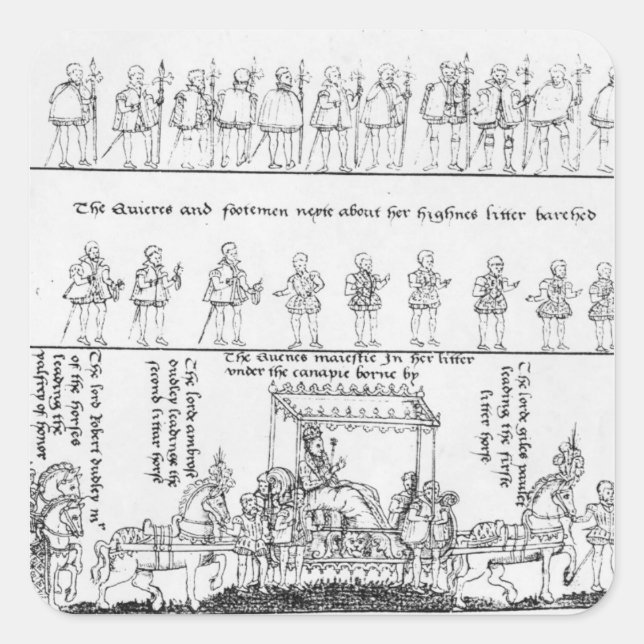 The Quieres and footemen nexte about her highnes litter barehed
The Quenes maiestie In her litter
vnder the canapie borne by
The lord Robert dudley mr
of the horses
leading the
palfrey of honor
The lorde ambrose
dudley leadinge the
second littar horse
The lorde giles paulet
leading the firste
litter horse